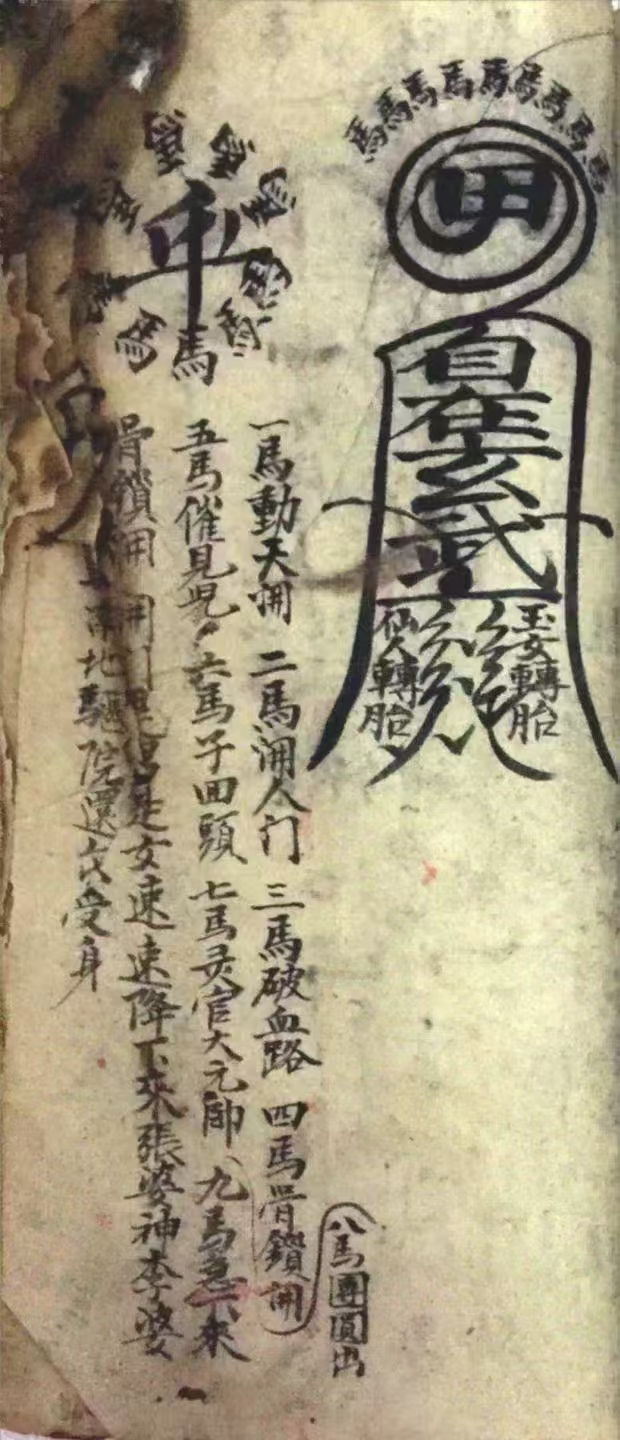 馬馬馬馬馬馬馬馬馬
甲
自在玄武
玉女轉胎
仙人轉胎
馬
一馬動天開 二馬開人门 三馬破血路 四馬骨鎖開
八馬團圓出
五馬催見児 六馬子回頭 七馬灵官大元帥 九馬急下來
骨鎖開 開 是女速速降下來張婆神李婆
地驅院還 受身